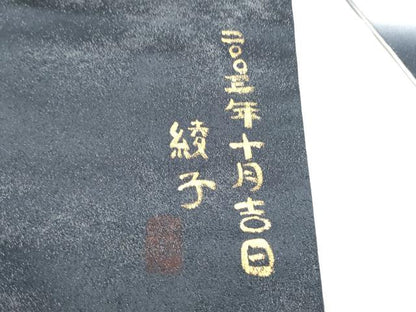 二〇〇三年十月吉日
綾子